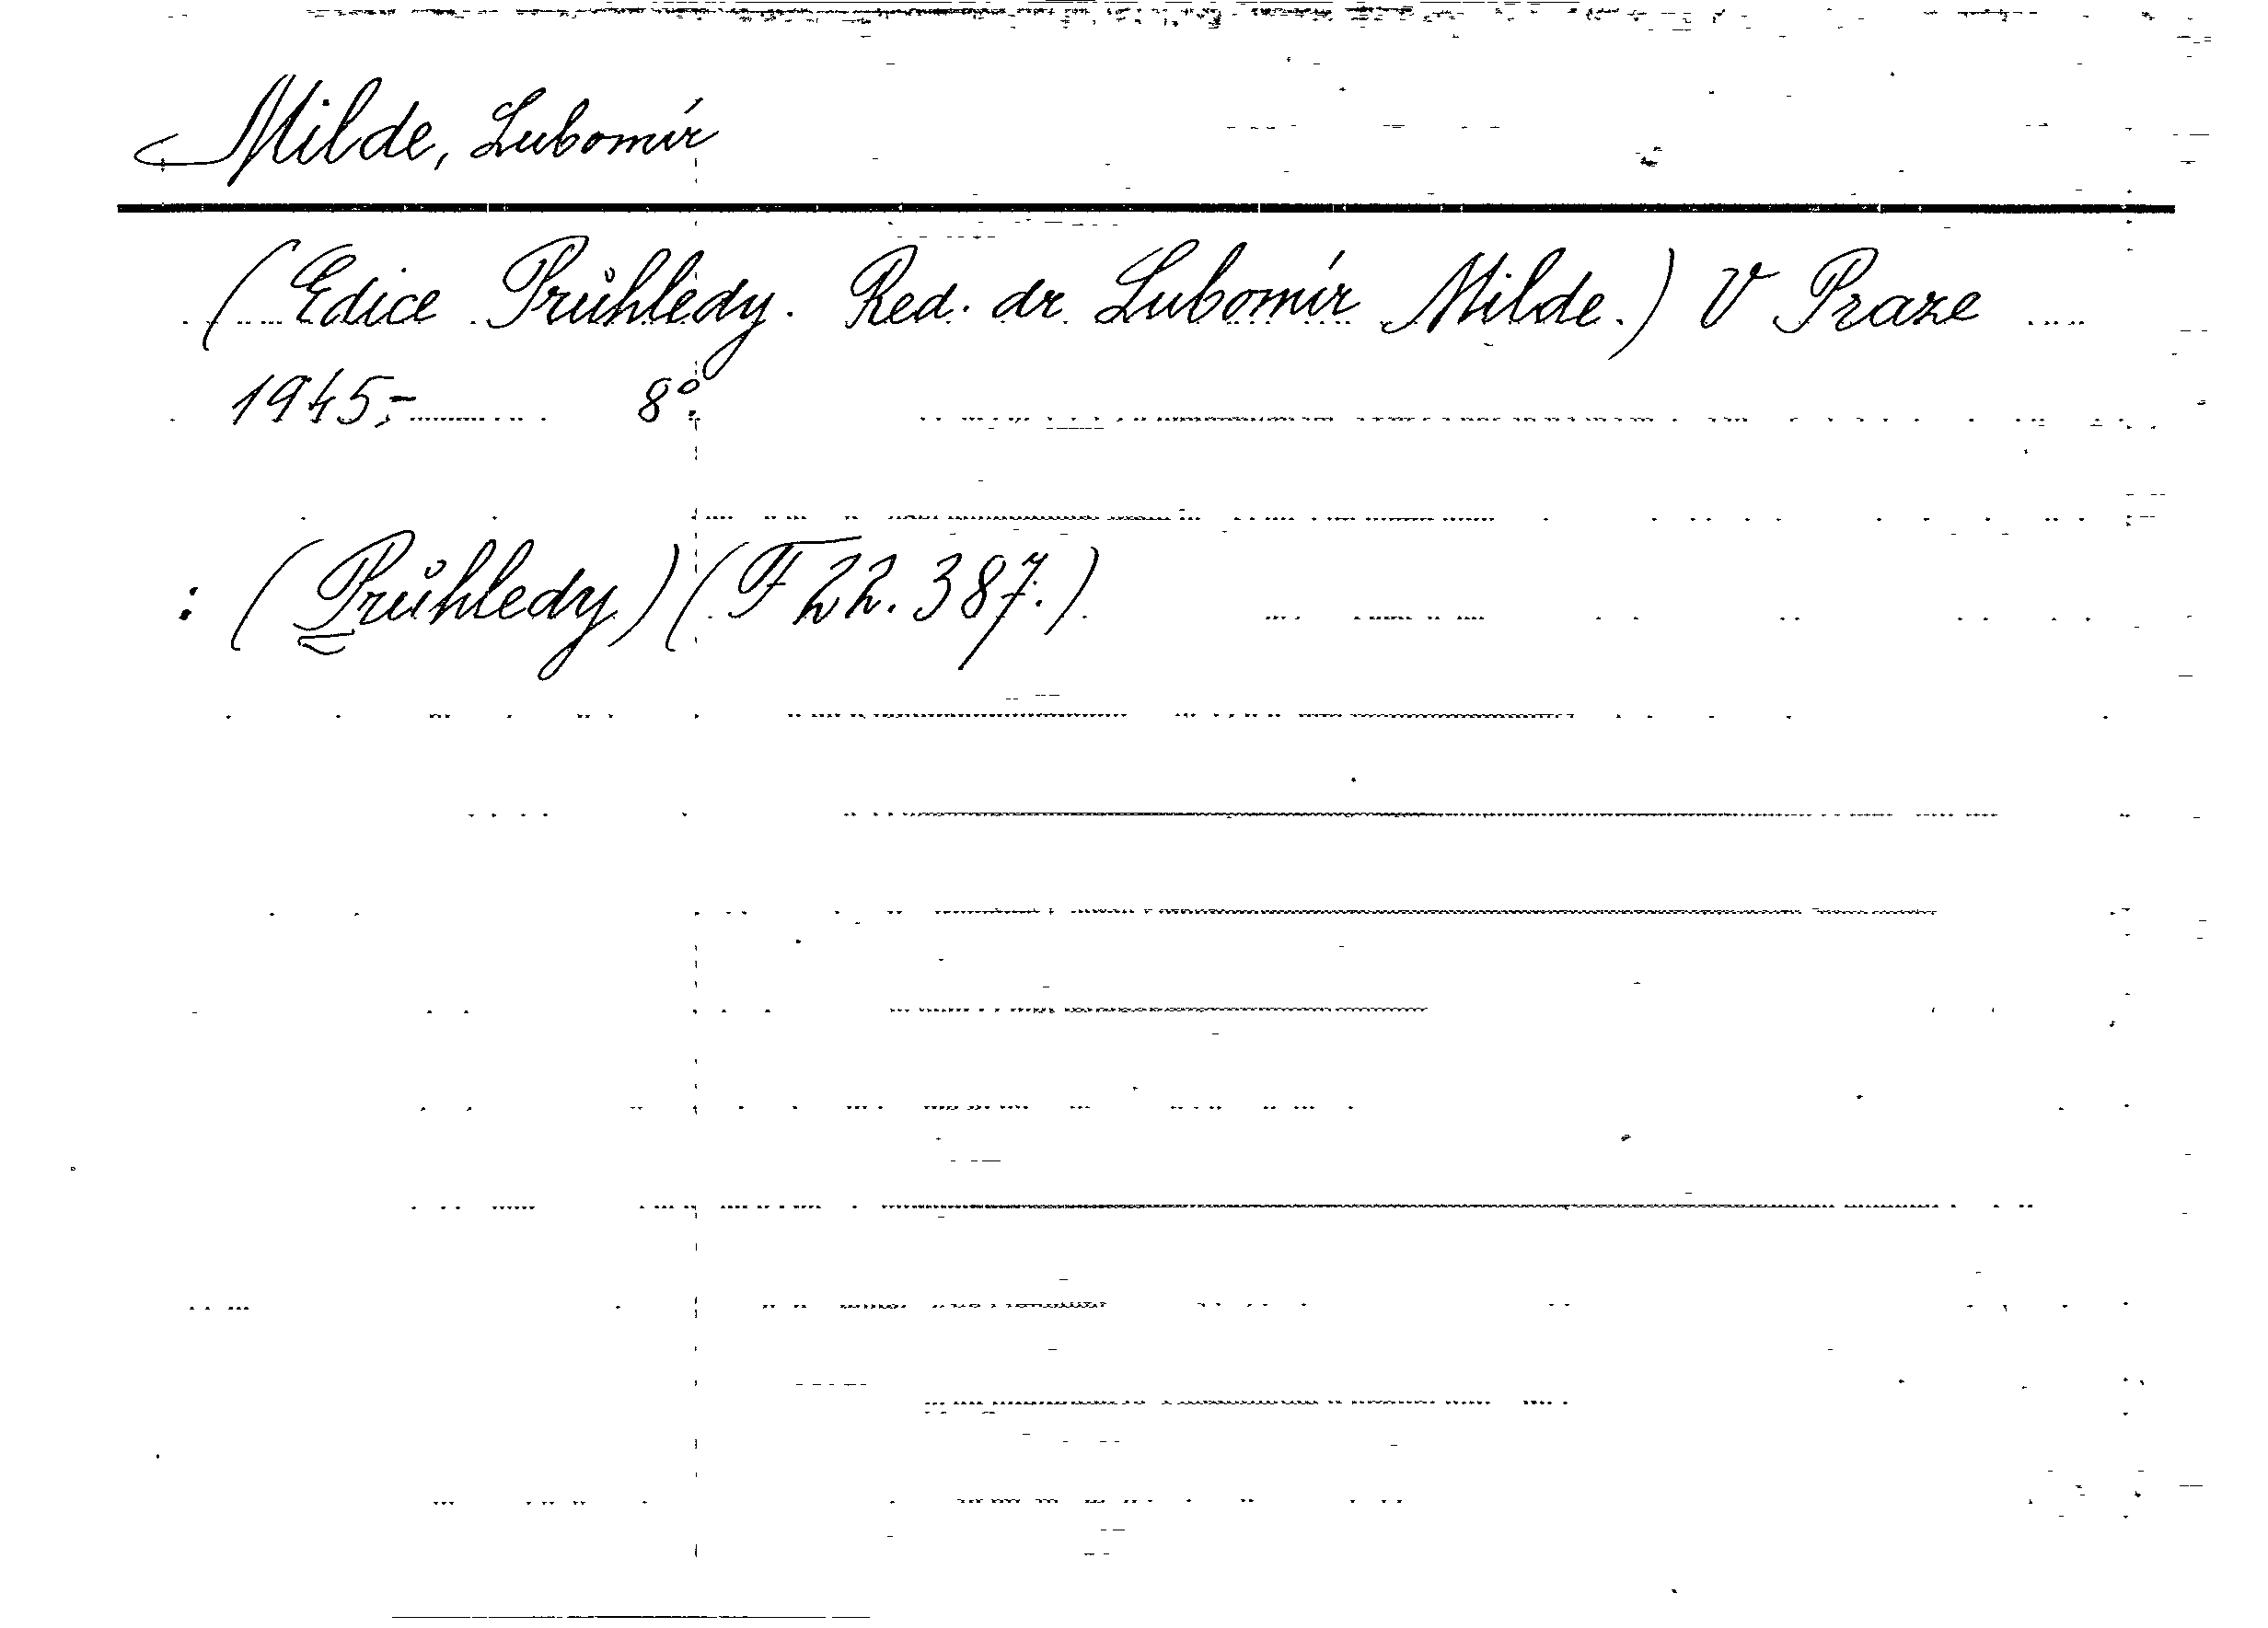 Milde, Lubomír
(Edice Průhledy. Red. dr. Lubomír Milde.) V Praze
1945,- 8°.
: (Průhledy) (F 22.387.)